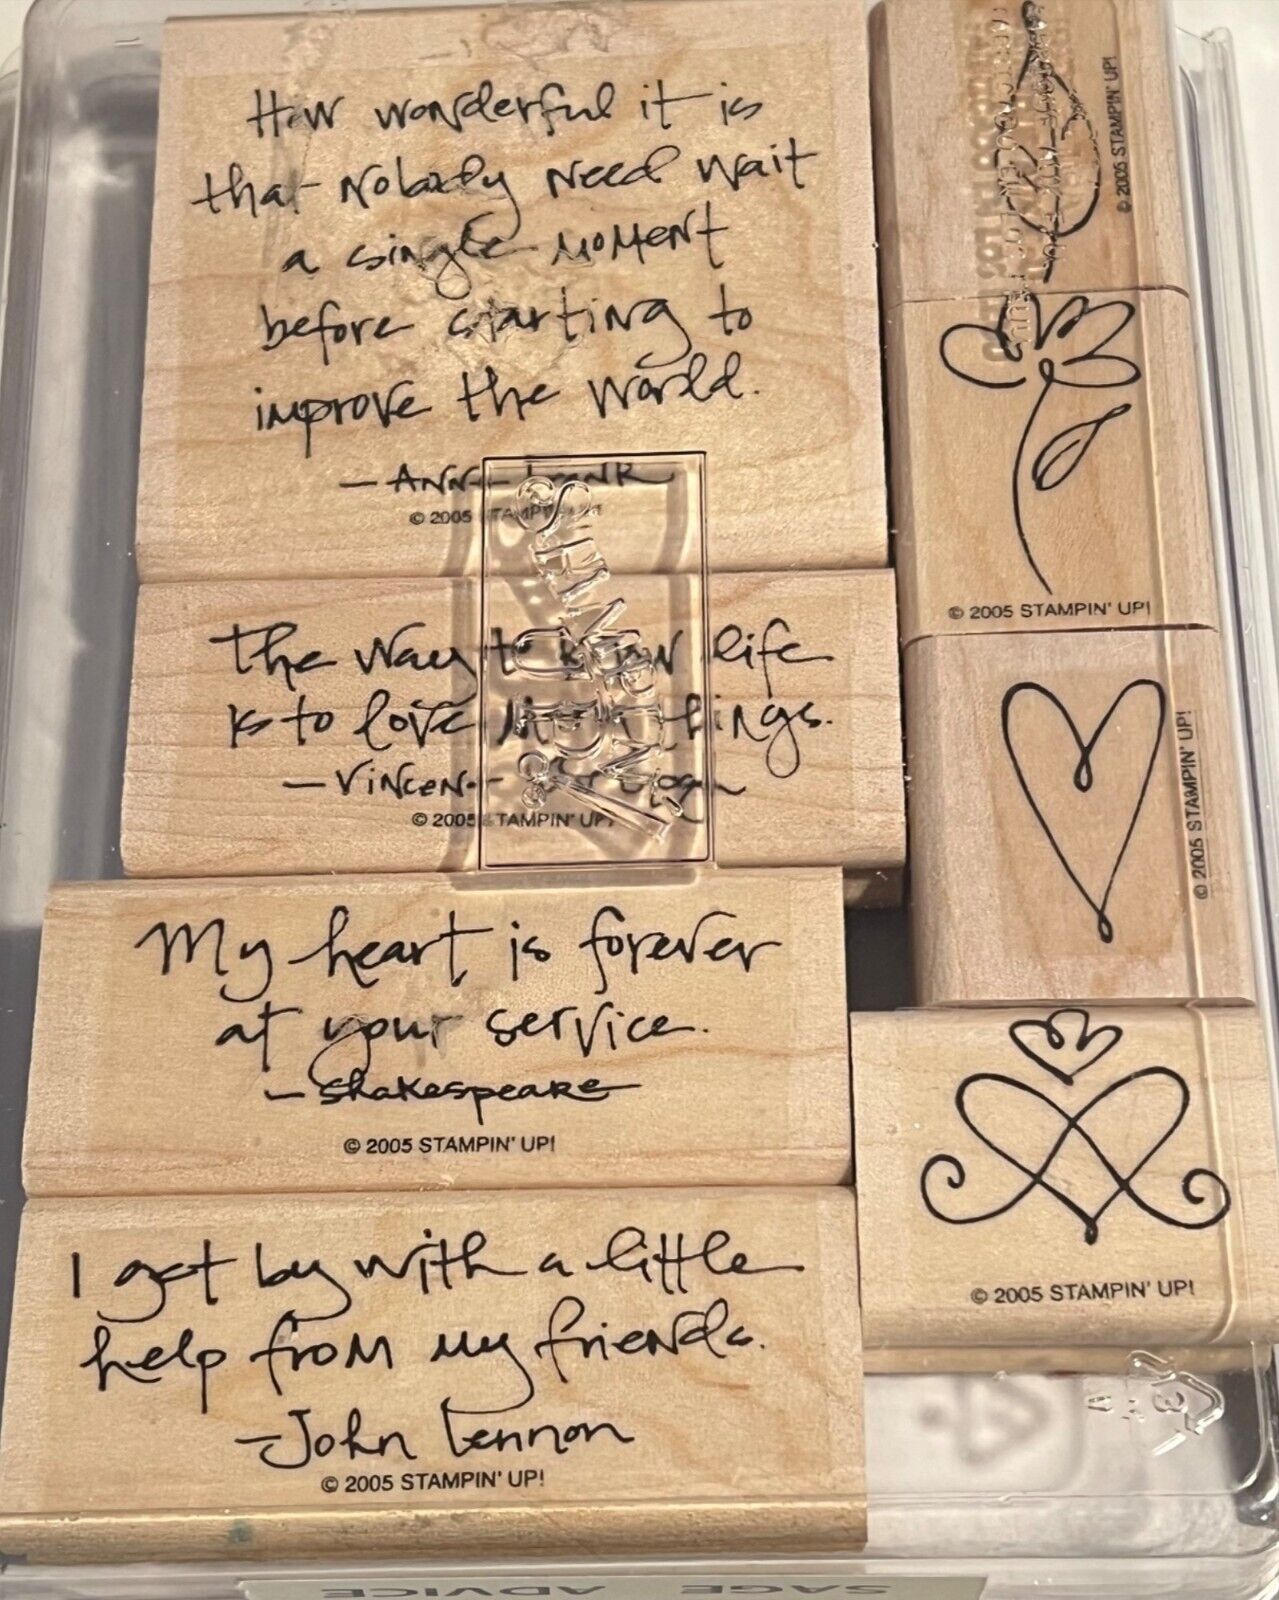 How wonderful it is
that nobody need wait
a single moment
before starting to
improve the world.
— Anne Frank
© 2005 STAMPIN' UP!
The way to know life
is to love many things.
— Vincent van Gogh
© 2005 STAMPIN' UP!
My heart is forever
at your service.
— Shakespeare
© 2005 STAMPIN' UP!
I get by with a little
help from my friends.
— John Lennon
© 2005 STAMPIN' UP!
© 2005 STAMPIN' UP!
© 2005 STAMPIN' UP!
© 2005 STAMPIN' UP!
© 2005 STAMPIN' UP!
STAMPIN' UP!
SAGE ADVICE